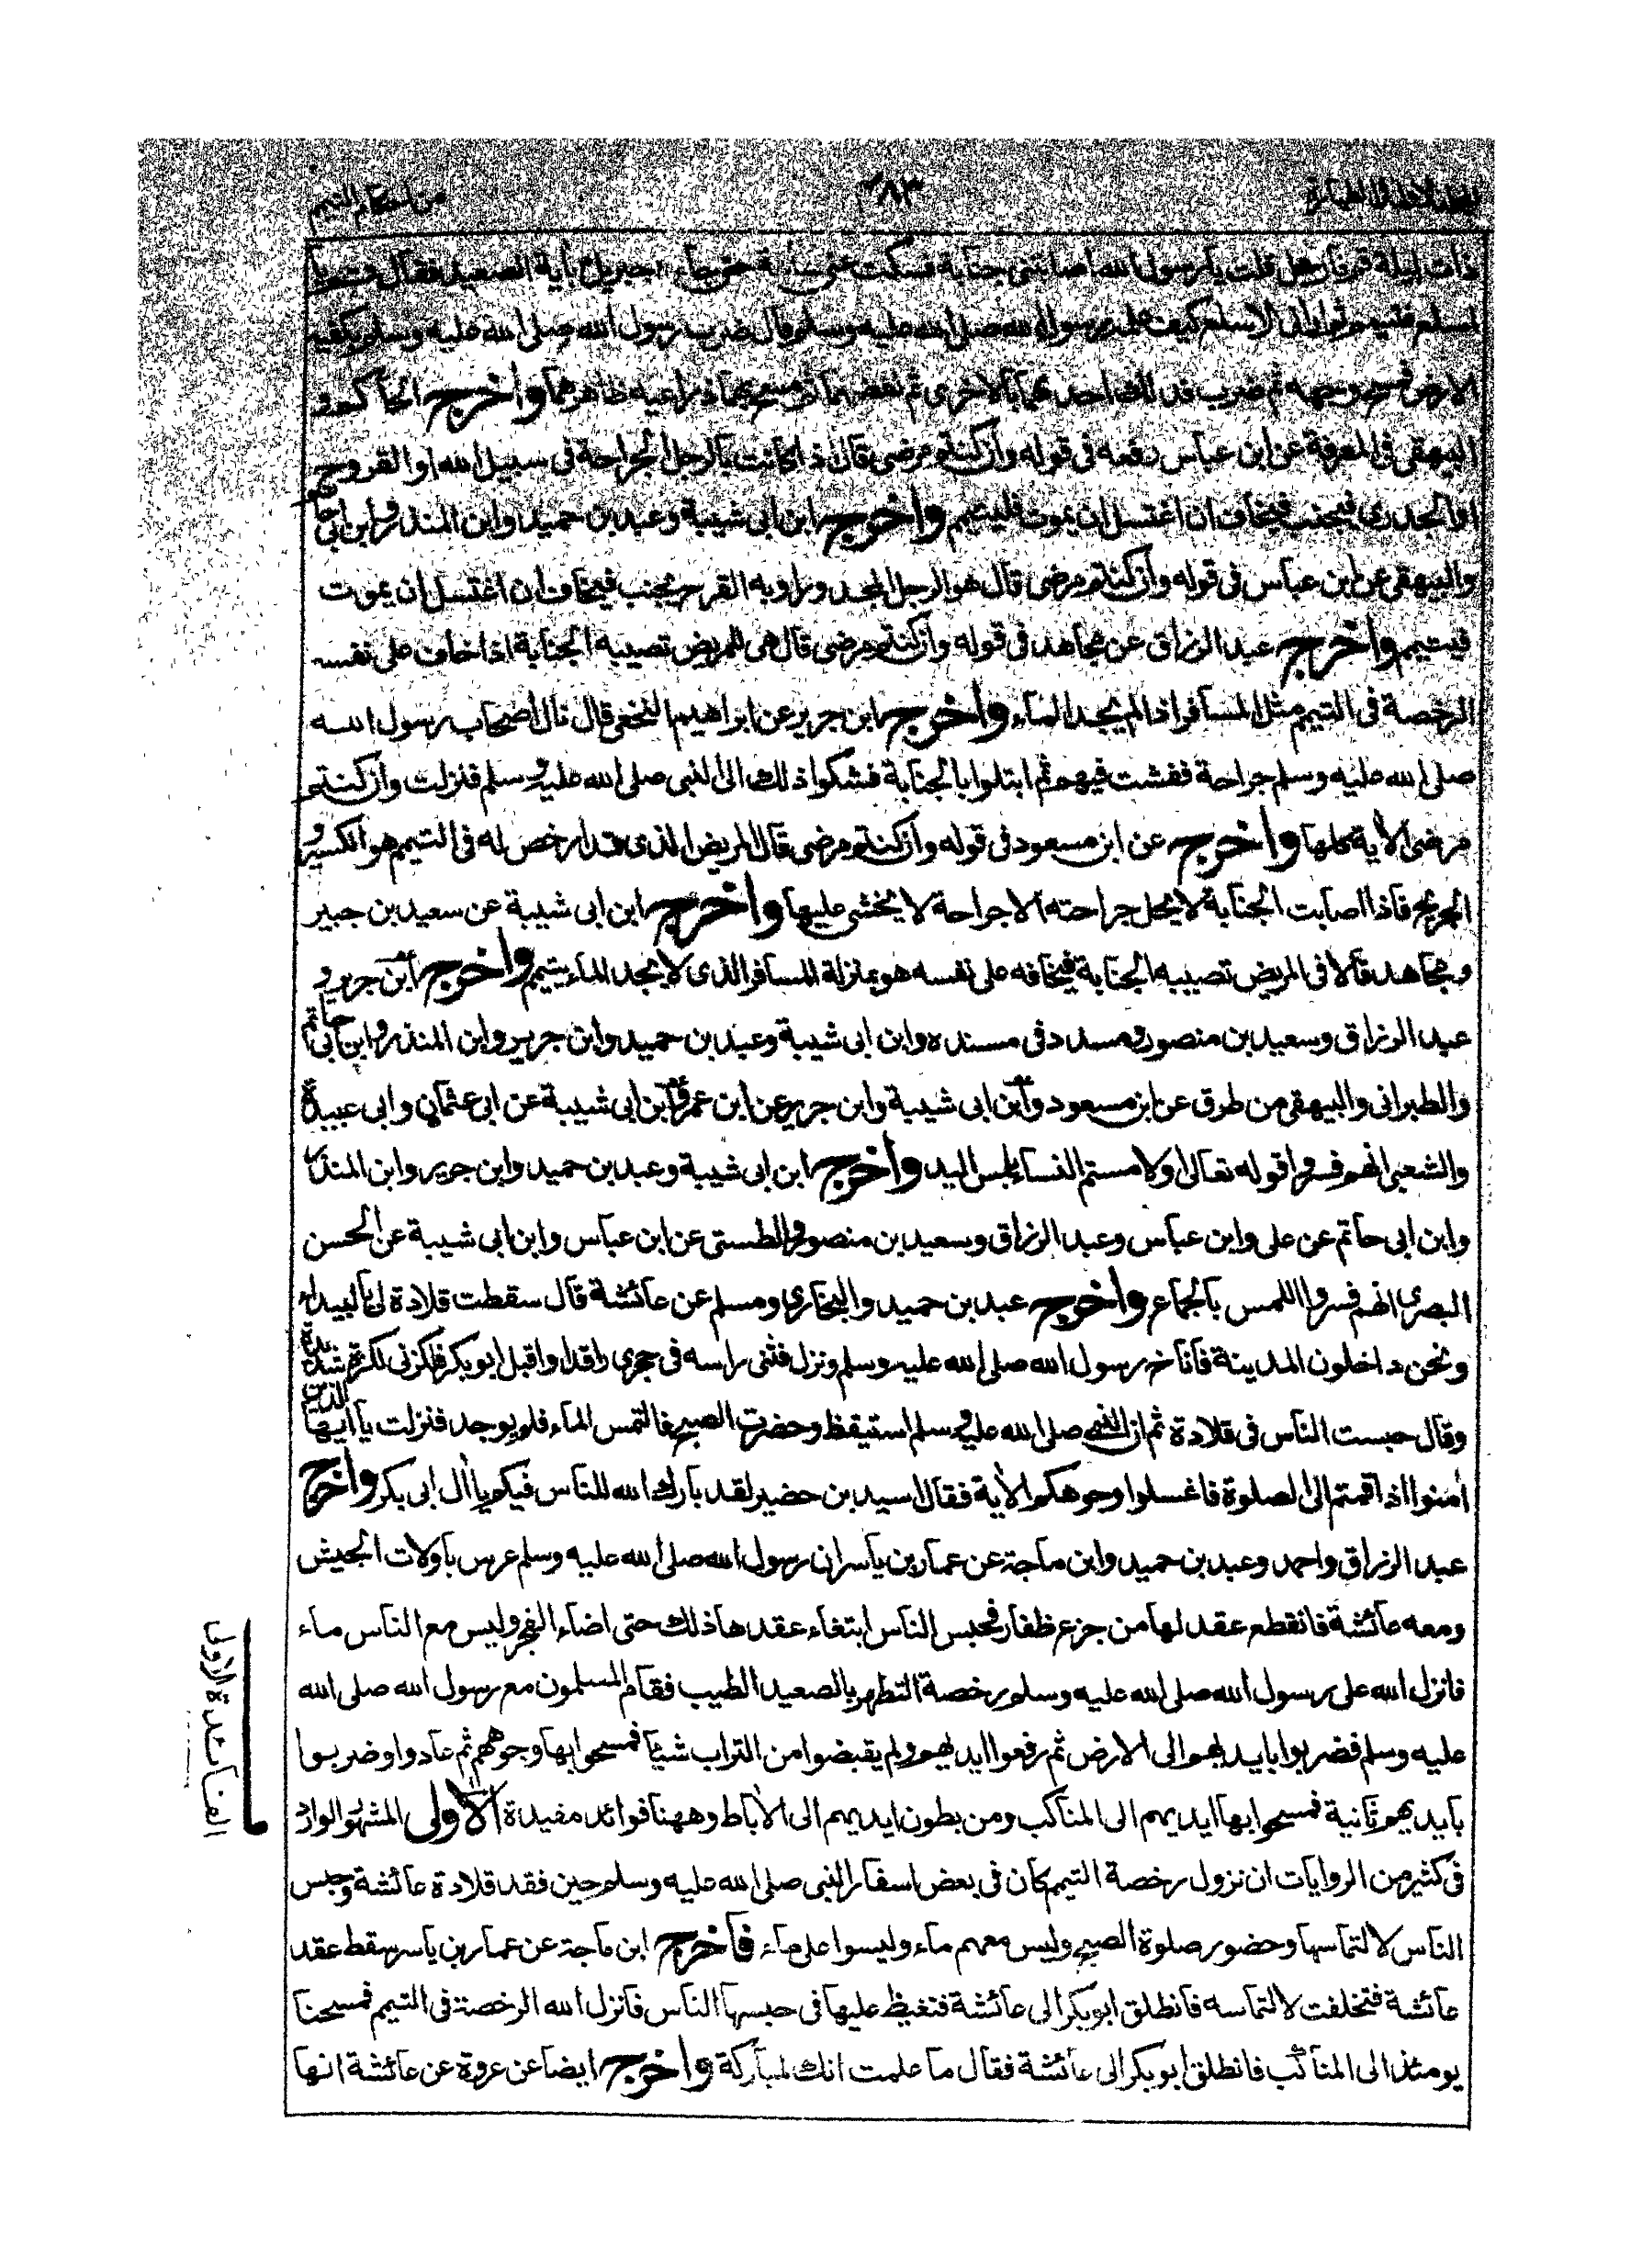 من احكام التيمم
ذات ليلة قم فارحل قلت يا رسول الله اصابتنى جنابة فسكت عنى ساعة حتى جاء جبريل بأية الصعيد فقال قم يا
اسلع فتيمم ثم ارانى الاسلع كيف علمه رسول الله صلى الله عليه وسلم قال ضرب رسول الله صلى الله عليه وسلم بكفيه
الارض فمسح وجهه ثم ضرب فدلك احدهما بالاخرى ثم نفضهما ثم مسح بهما ذراعيه ظاهرهما واخرج الحاكم و
البيهقى فى المعرفة عن ابن عباس رفعه فى قوله وان كنتم مرضى قال اذا كانت بالرجل الجراحة فى سبيل الله او القروح
او الجدرى فيجنب فيخاف ان اغتسل ان يموت فليتيمم واخرج ابن ابى شيبة وعبد بن حميد وابن المنذر وابن ابى حاتم
والبيهقى عن ابن عباس فى قوله وان كنتم مرضى قال هو الرجل المجدور او به القرح يجنب فيخاف ان اغتسل ان يموت
فيتيمم واخرج عبد الرزاق عن مجاهد فى قوله وان كنتم مرضى قال هى للمريض تصيبه الجنابة اذا خاف على نفسه
الرخصة فى التيمم مثل المسافر اذا لم يجد الماء واخرج ابن جرير عن ابراهيم النخعى قال نال اصحاب رسول الله
صلى الله عليه وسلم جراحة ففشت فيهم ثم ابتلوا بالجنابة فشكوا ذلك الى النبى صلى الله عليه وسلم فنزلت وان كنتم
مرضى الأية كلها واخرج عن ابن مسعود فى قوله وان كنتم مرضى قال المريض الذى قد ارخص له فى التيمم هو الكسير و
الجريح فاذا اصابت الجنابة لا يحل جراحته الا جراحة لا يخشى عليها واخرج ابن ابى شيبة عن سعيد بن جبير
ومجاهد قالا فى المريض تصيبه الجنابة فيخافه على نفسه هو بمنزلة المسافر الذى لا يجد الماء يتيمم واخرج ابن جرير و
عبد الرزاق وسعيد بن منصور ومسدد فى مسنده وابن ابى شيبة وعبد بن حميد وابن جرير وابن المنذر وابن ابى حاتم
والطبرانى والبيهقى من طرق عن ابن مسعود وابن ابى شيبة وابن جرير عن ابن عمر وابن ابى شيبة عن ابى عثمان وابى عبيدة
والشعبى انهم فسروا قوله تعالى او لامستم النساء بلمس اليد واخرج ابن ابى شيبة وعبد بن حميد وابن جرير وابن المنذر
وابن ابى حاتم عن على وابن عباس وعبد الرزاق وسعيد بن منصور والطستى عن ابن عباس وابن ابى شيبة عن الحسن
البصرى انهم فسروا اللمس بالجماع واخرج عبد بن حميد والبخارى ومسلم عن عائشة قال سقطت قلادة لى بالبيداء
ونحن داخلون المدينة فاناخ رسول الله صلى الله عليه وسلم ونزل فثنى راسه فى حجرى راقدا واقبل ابو بكر فلكزنى لكزة شديدة
وقال حبست الناس فى قلادة ثم ان النبى صلى الله عليه وسلم استيقظ وحضرت الصبح فالتمس الماء فلم يوجد فنزلت يا ايها الذين
أمنوا اذا قمتم الى الصلوة فاغسلوا وجوهكم الأية فقال اسيد بن حضير لقد بارك الله للناس فيكم يا أل ابى بكر واخرج
عبد الرزاق واحمد وعبد بن حميد وابن ماجة عن عمار بن ياسر ان رسول الله صلى الله عليه وسلم عرس باولات الجيش
ومعه عائشة فانقطع عقد لها من جزع ظفار فحبس الناس ابتغاء عقدها ذلك حتى اضاء الفجر وليس مع الناس ماء
فانزل الله على رسول الله صلى الله عليه وسلم رخصة التطهر بالصعيد الطيب فقام المسلمون مع رسول الله صلى الله
عليه وسلم فضربوا بايديهم الى الارض ثم رفعوا ايديهم ولم يقبضوا من التراب شيئا فمسحوا بها وجوههم ثم عادوا وضربوا
بايديهم ثانية فمسحوا بها ايديهم الى المناكب ومن بطون ايديهم الى الأباط وههنا فوائد مفيدة الاولى المشهور الوارد
الفائدة الاولى
فى كثير من الروايات ان نزول رخصة التيمم كان فى بعض اسفار النبى صلى الله عليه وسلم حين فقد قلادة عائشة وحبس
الناس لالتماسها وحضور صلوة الصبح وليس معهم ماء وليسوا على ماء فاخرج ابن ماجة عن عمار بن ياسر سقط عقد
عائشة فتخلفت لالتماسه فانطلق ابو بكر الى عائشة فتغيظ عليها فى حبسها الناس فانزل الله الرخصة فى التيمم فمسحنا
يومئذ الى المناكب فانطلق ابو بكر الى عائشة فقال ما علمت انك لمباركة واخرج ايضا عن عروة عن عائشة انها